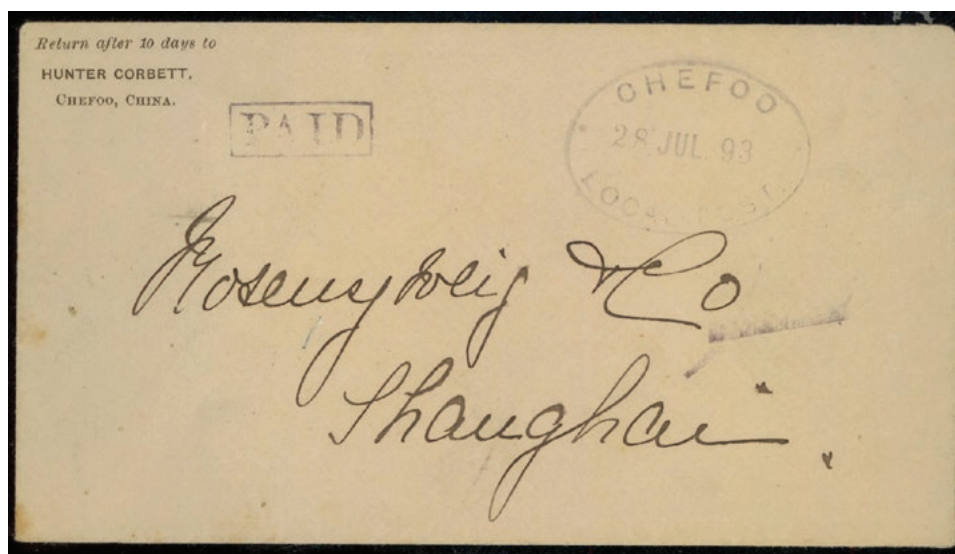 Return after 10 days to
HUNTER CORBETT,
CHEFOO, CHINA.
PAID
CHEFOO
28 JUL 93
LOCAL POST.
Rosenzweig & Co
Shanghai.